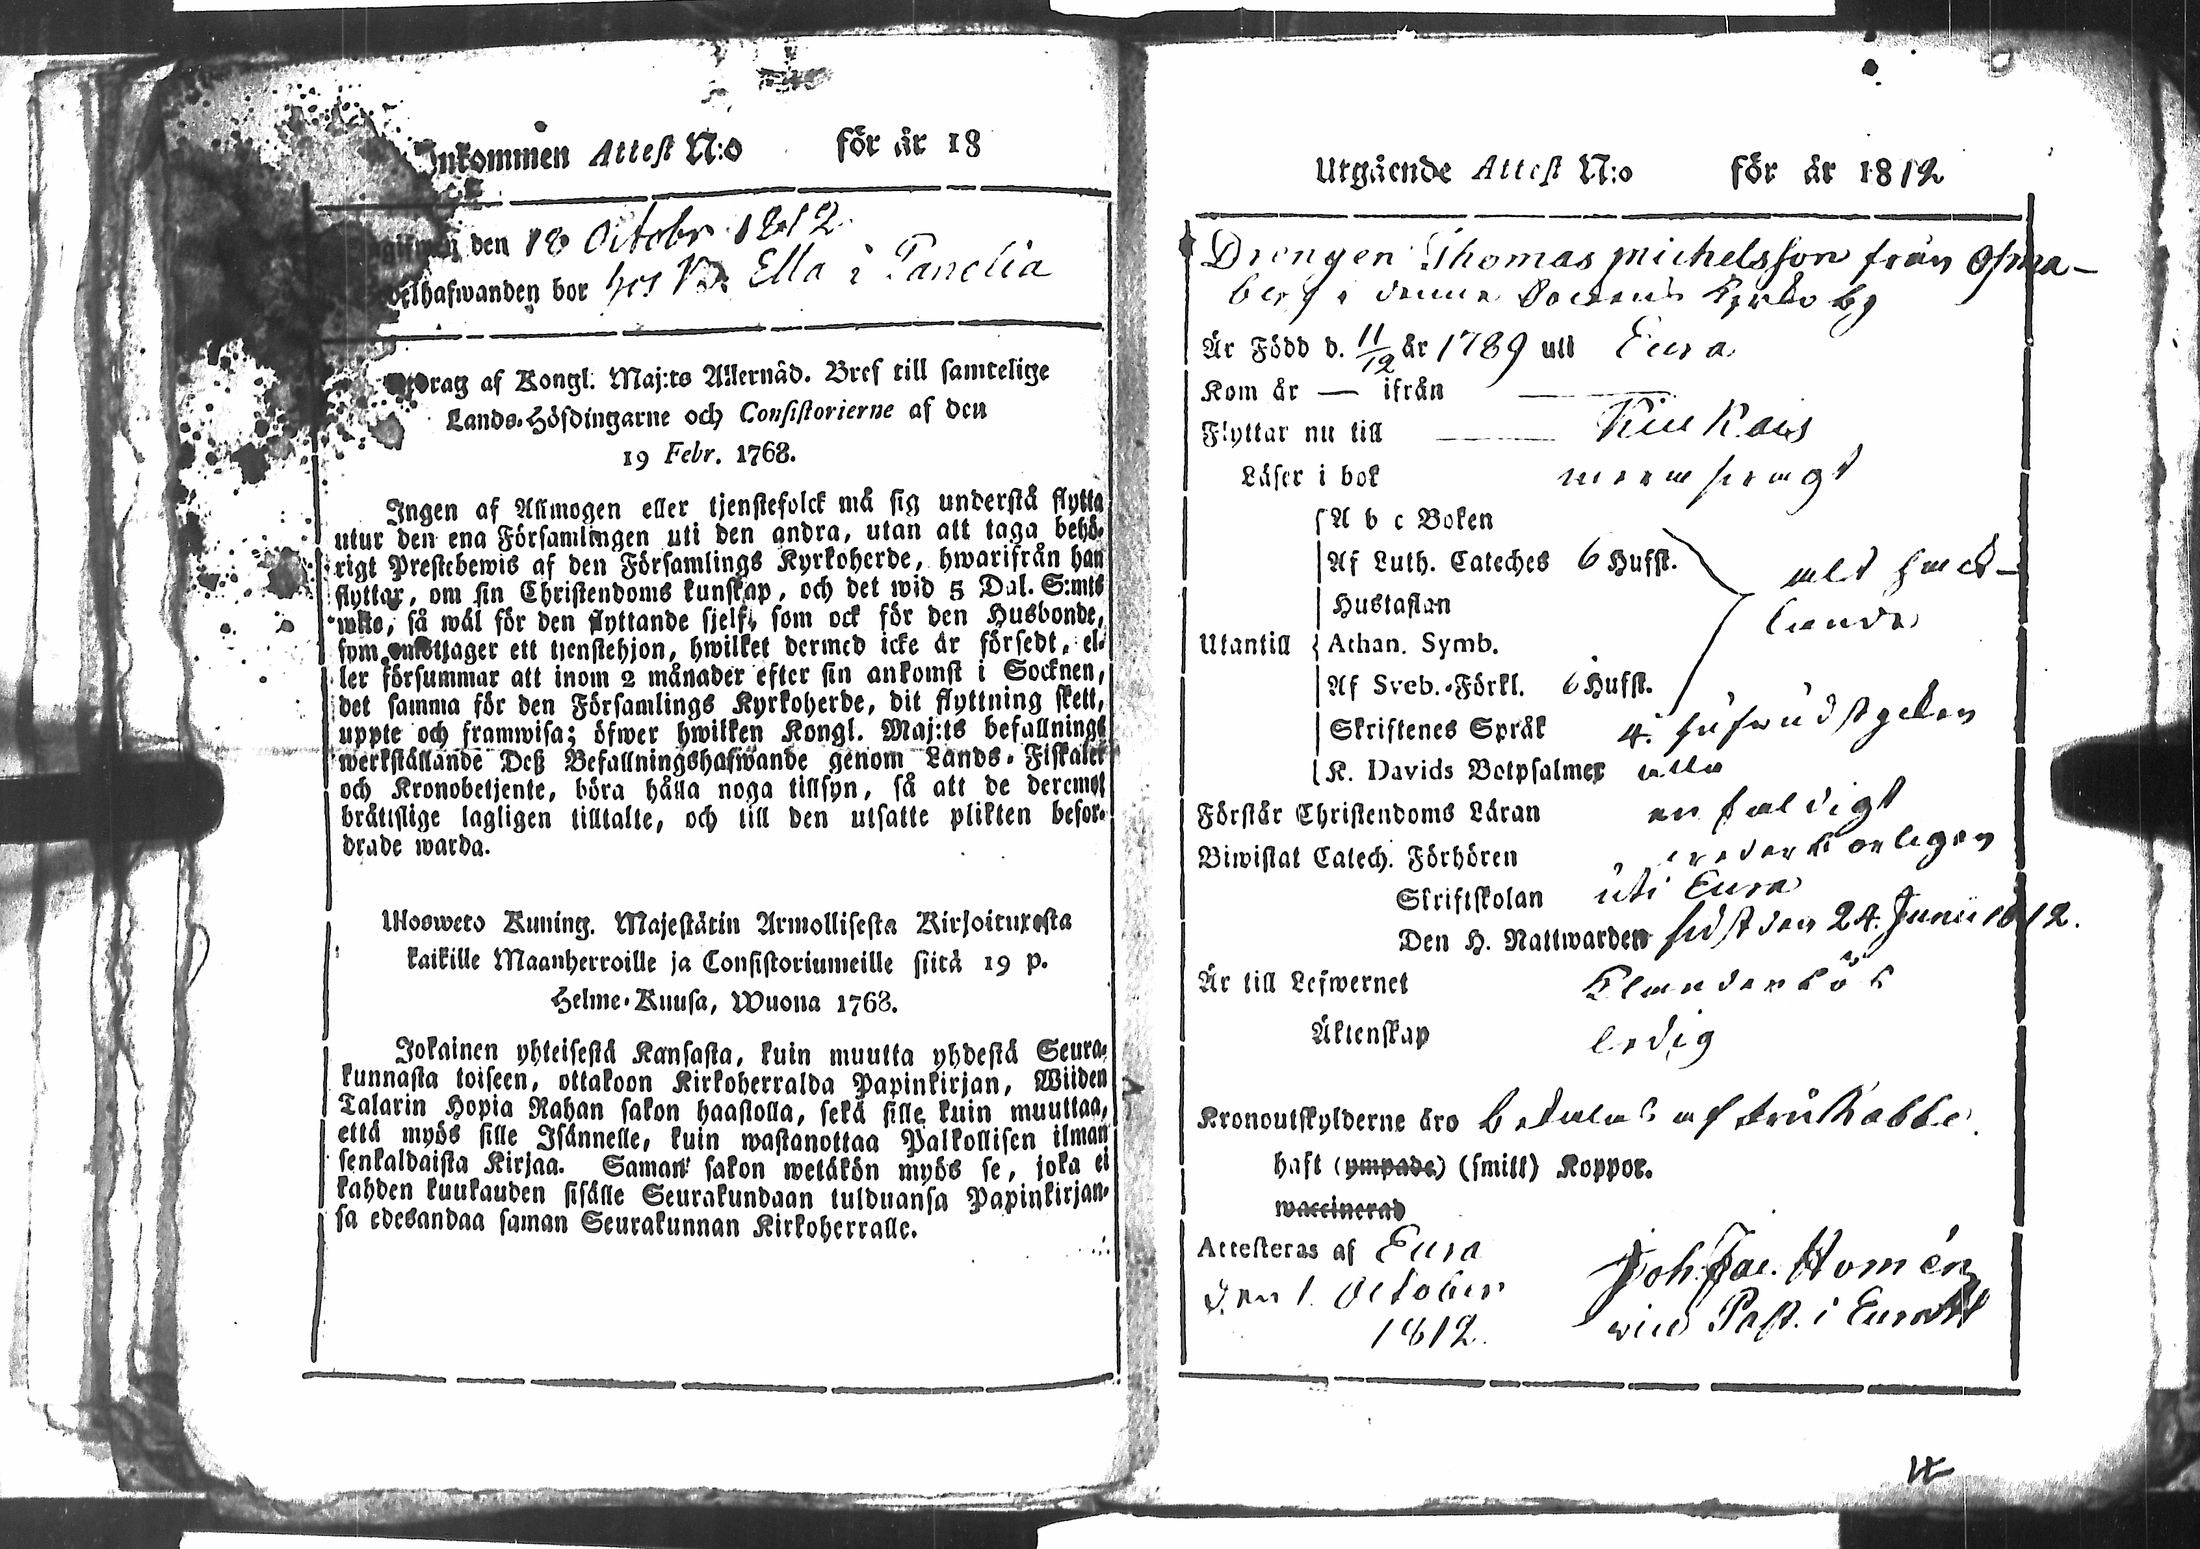 Inkommen Attest N:o för år 18
den 18 Octobr 1812
bor hos Ella i Panelia
af Kongl. Maj:ts Allernåd. Bref till samtelige
Lands-Höfdingarne och Consistorierne af den
19 Febr. 1768.
Ingen af Allmogen eller tjenstefolck må sig understå flytta
utur den ena Församlingen uti den andra, utan att taga behö-
rigt Prestebewis af den Församlings Kyrkoherde, hwarifrån han
flyttar, om sin Christendoms kunskap, och det wid 5 Dal. S:mts
wite, så wäl för den flyttande sjelf, som ock för den Husbonde,
som emottager ett tjenstehjon, hwilket dermed icke är försedt, el-
ler försummar att inom 2 månader efter sin ankomst i Socknen,
det samma för den Församlings Kyrkoherde, dit flyttning skett,
uppte och framwisa; öfwer hwilken Kongl. Maj:ts befallnings
werkställande Deß Befallningshafwande genom Lands-Fiskaler
och Kronobetjente, böra hålla noga tillsyn, så att de deremot
bråttslige lagligen tilltalte, och till den utsatte plikten befor-
drade warda.
Ulosweto Kuning. Majestätin Armollisesta Kirjoituxesta
kaikille Maanherroille ja Consistoriumeille siitä 19 p.
Helme-Kuusa, Wuona 1768.
Jokainen yhteisestä Kansasta, kuin muutta yhdestä Seura-
kunnasta toiseen, ottakoon Kirkoherralda Papinkirjan, Wiiden
Talarin Hopia Rahan sakon haastolla, sekä sille kuin muuttaa,
että myös sille Isännelle, kuin wastanottaa Palkollisen ilman
senkaldaista Kirjaa. Saman sakon wetäkön myös se, joka ei
kahden kuukauden sisälle Seurakundaan tulduansa Papinkirjan-
sa edesandaa saman Seurakunnan Kirkoherralle.
Utgående Attest N:o för år 1812
Drengen Thomas Michelsson från Osma-
berg i denna Sockens Kyrko by
Är Född d. 11/12 år 1789 uti Eura
Kom år — ifrån —
Flyttar nu till — Kiukais
Läser i bok
A b c Boken
Af Luth. Cateches 6 Hufst.
Hustaflan
Utantill Athan. Symb.
Af Sveb.-Förkl. 6 Hufst.
Skriftenes Språk 4.
K. Davids Botpsalmer alla
Förstår Christendoms Läran enfaldigt
Biwistat Catech. Förhören
Skriftskolan uti Eura
Den H. Nattwarden sidst den 24. Junii 1812.
Är till Lefwernet Klanderlös
Äktenskap ledig
Kronoutskylderne äro betalas af
haft (ympade) (smitt) Koppor.
waccinerad
Attesteras af Eura
den 1. October
1812.
Joh. Jac. Homén
vice Past. i Eura